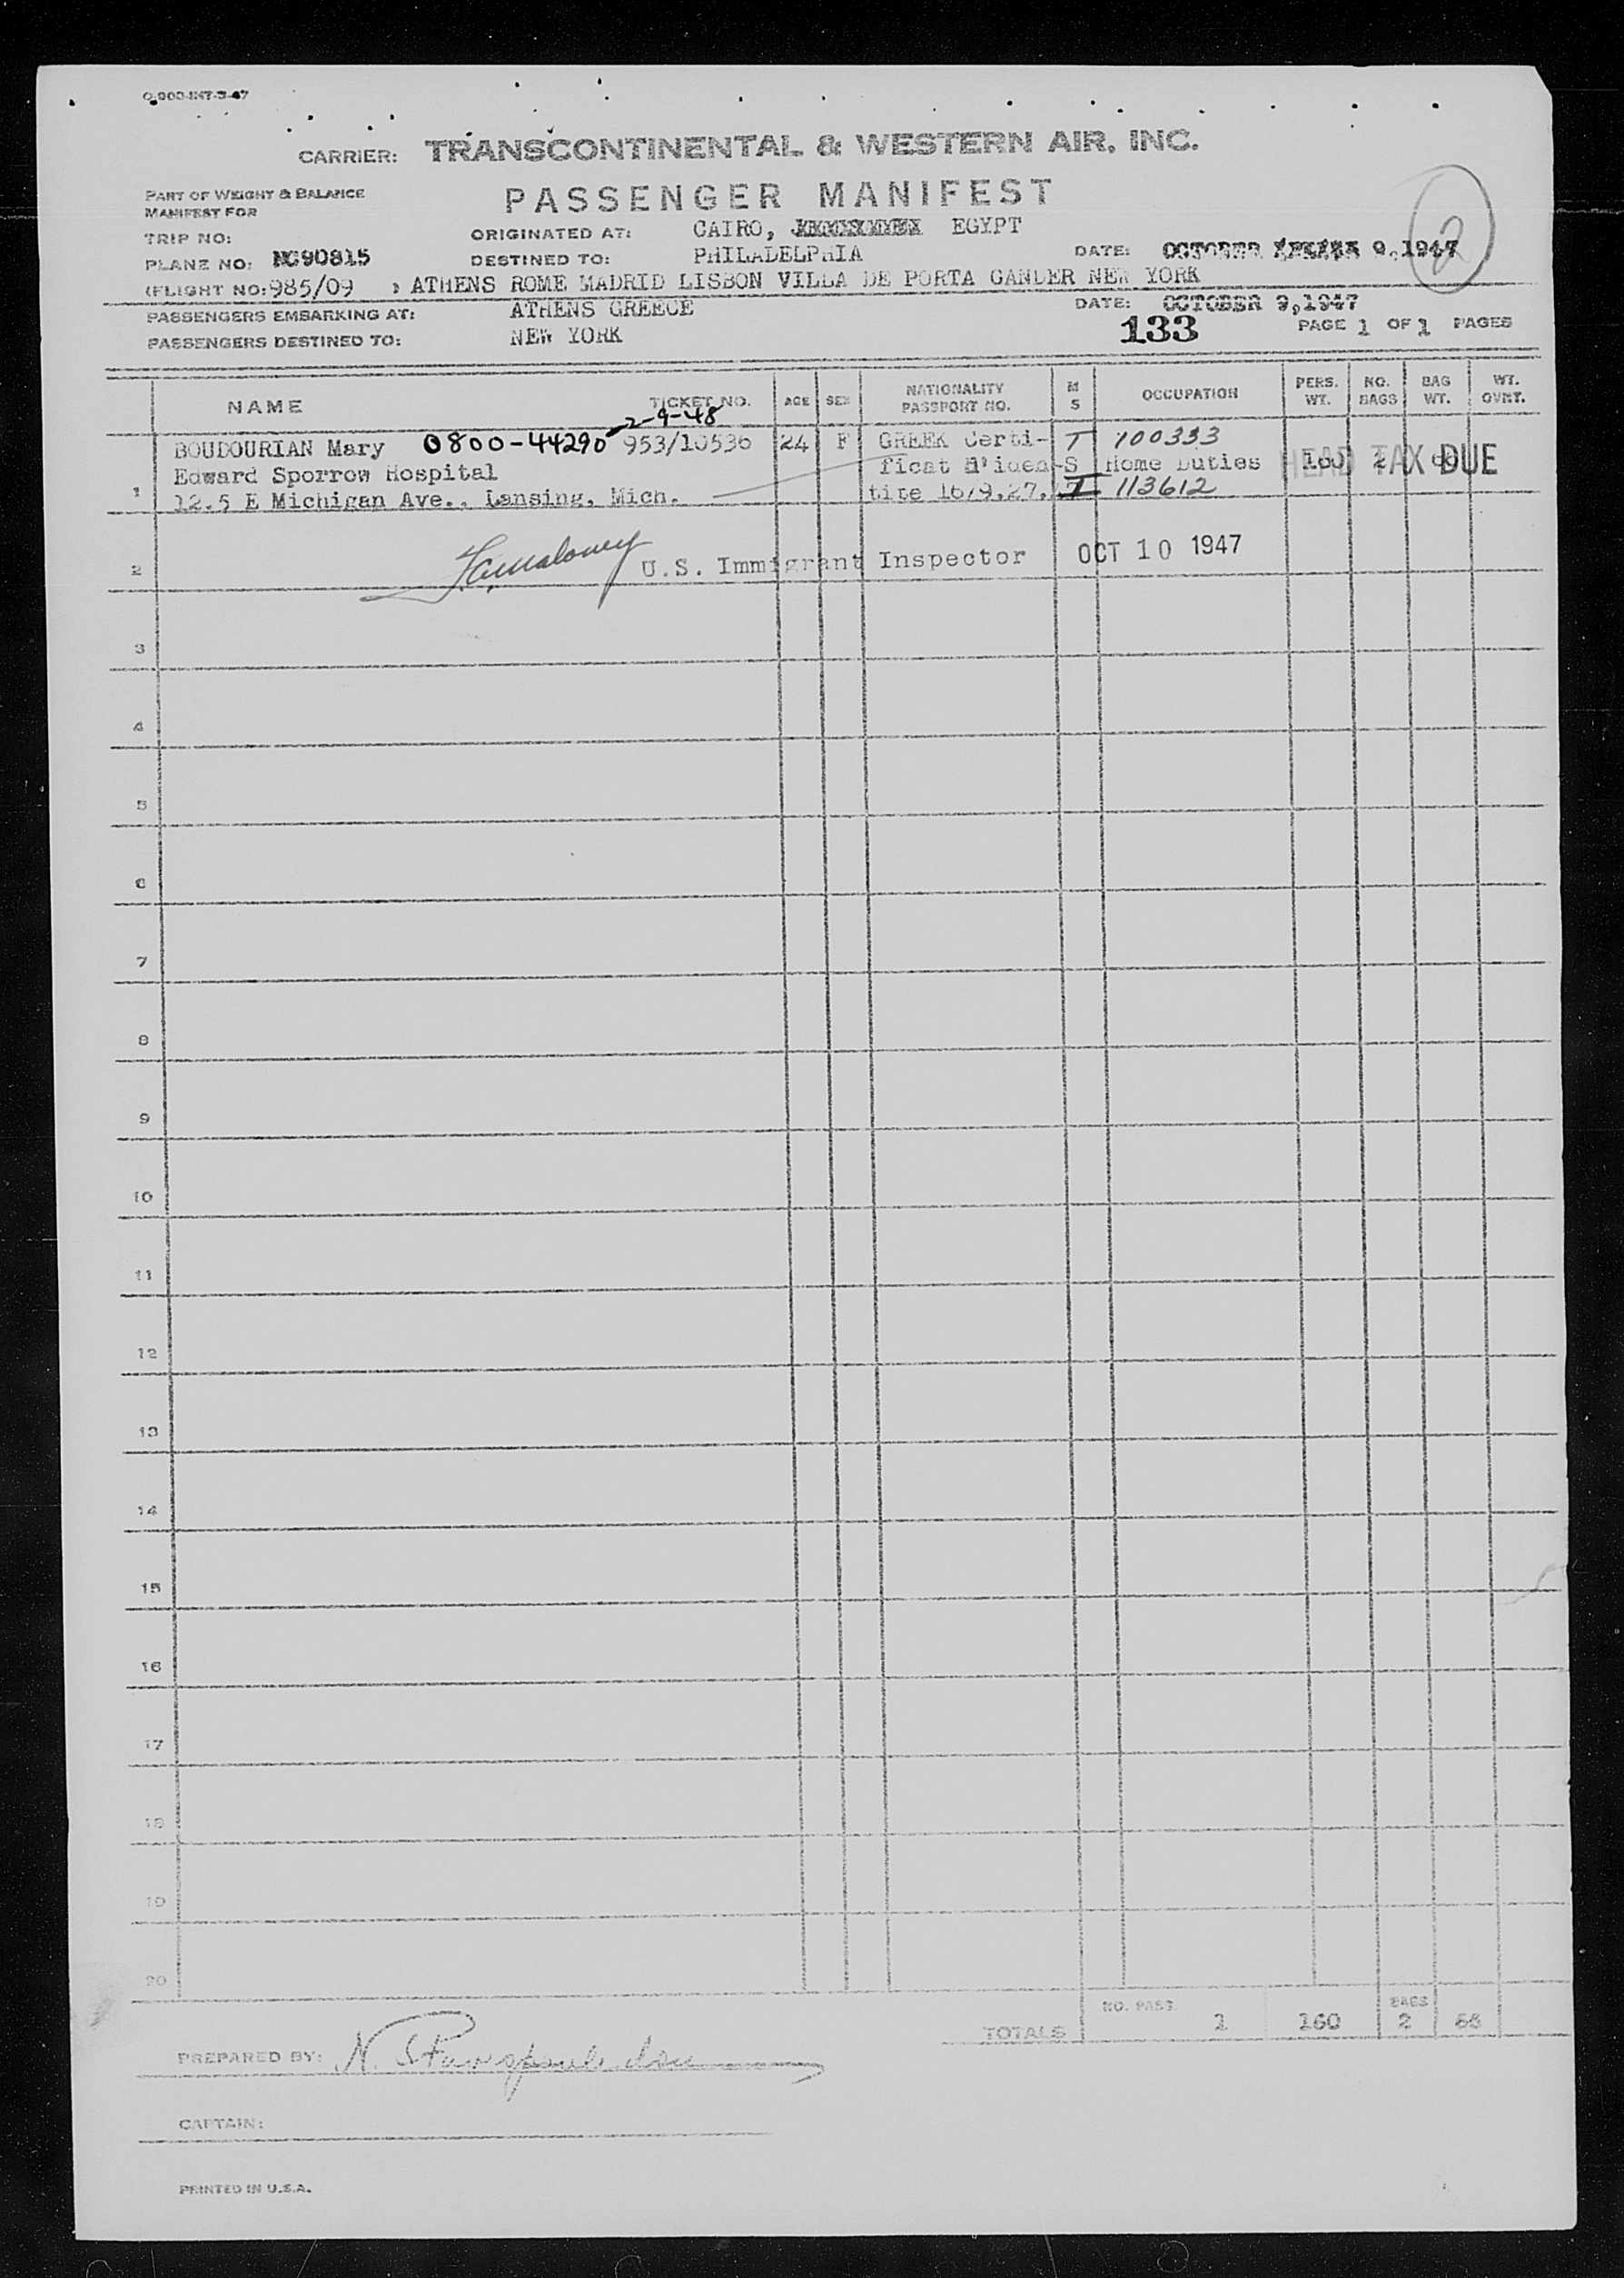 CARRIER: TRANSCONTINENTAL & WESTERN AIR, INC.
PART OF WEIGHT & BALANCE
MANIFEST FOR
PASSENGER MANIFEST
TRIP NO:
ORIGINATED AT: CAIRO, EGYPT
PLANE NO: NC90815
DESTINED TO: PHILADELPHIA
DATE: OCTOBER 9,1947
2
(FLIGHT NO:985/09 , ATHENS ROME MADRID LISBON VILLA DE PORTA GANDER NEW YORK
PASSENGERS EMBARKING AT: ATHENS GREECE DATE: OCTOBER 9,1947
PASSENGERS DESTINED TO: NEW YORK 133 PAGE 1 OF 1 PAGES
NAME TICKET NO. AGE SEX NATIONALITY PASSPORT NO. M S OCCUPATION PERS. WT. NO. BAGS BAG WT. WT. OVRT.
2-9-48
BOUDOURIAN Mary 0800-44290 953/10536 24 F GREEK Certi- T 100333
Edward Sporrow Hospital ficat d'iden- S Home Duties 160 2 HEAD TAX DUE
1 12.5 E Michigan Ave., Lansing, Mich. tite 1679.27. I 113612
2 U.S. Immigrant Inspector OCT 10 1947
3
4
5
6
7
8
9
10
11
12
13
14
15
16
17
18
19
20
TOTALS NO. PASS. 1 160 BAGS 2 66
PREPARED BY: N.
CAPTAIN:
PRINTED IN U.S.A.